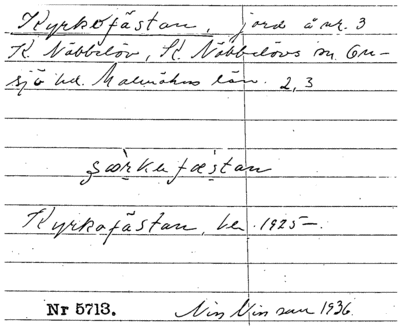 Kyrkofästan, jord å nr. 3
K. Näbbelöv, K. Näbbelövs sn. On-
sjö hd. Malmöhus län. 2, 3
Kyrkofästan, ber. 1925–
Nr 5713. Nils Nilsson 1936.